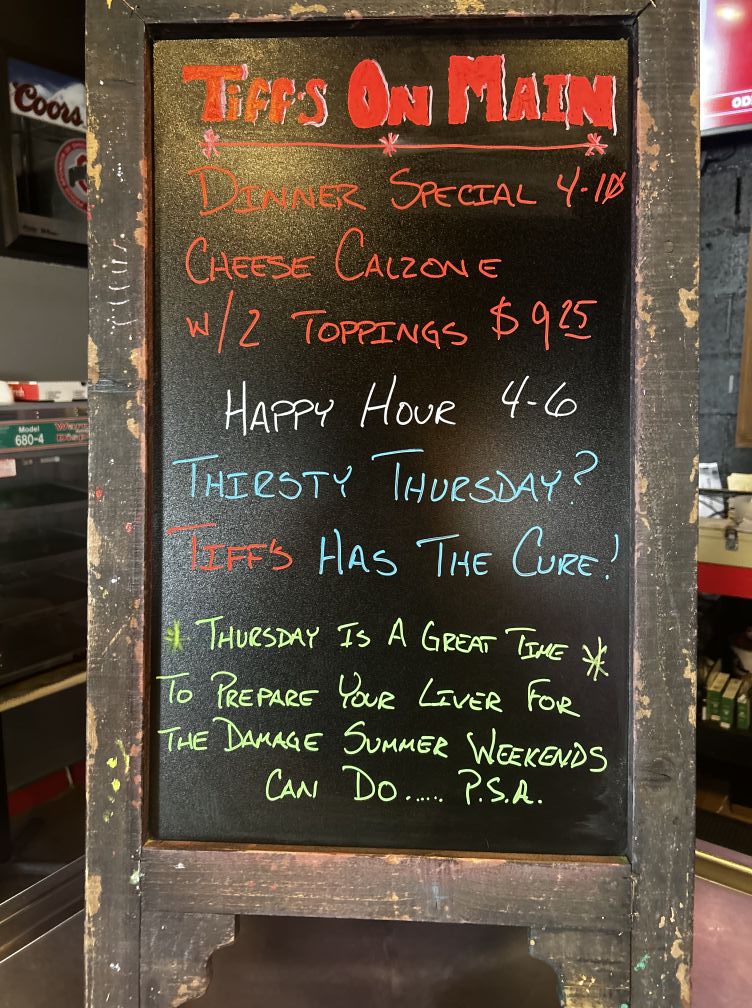 TIFF'S ON MAIN
DINNER SPECIAL 4-10
CHEESE CALZONE
W/2 TOPPINGS $9.25
HAPPY HOUR 4-6
THIRSTY THURSDAY?
TIFF'S HAS THE CURE!
* THURSDAY IS A GREAT TIME *
TO PREPARE YOUR LIVER FOR
THE DAMAGE SUMMER WEEKENDS
CAN DO..... P.S.A.
Coors
Model
680-4
OD